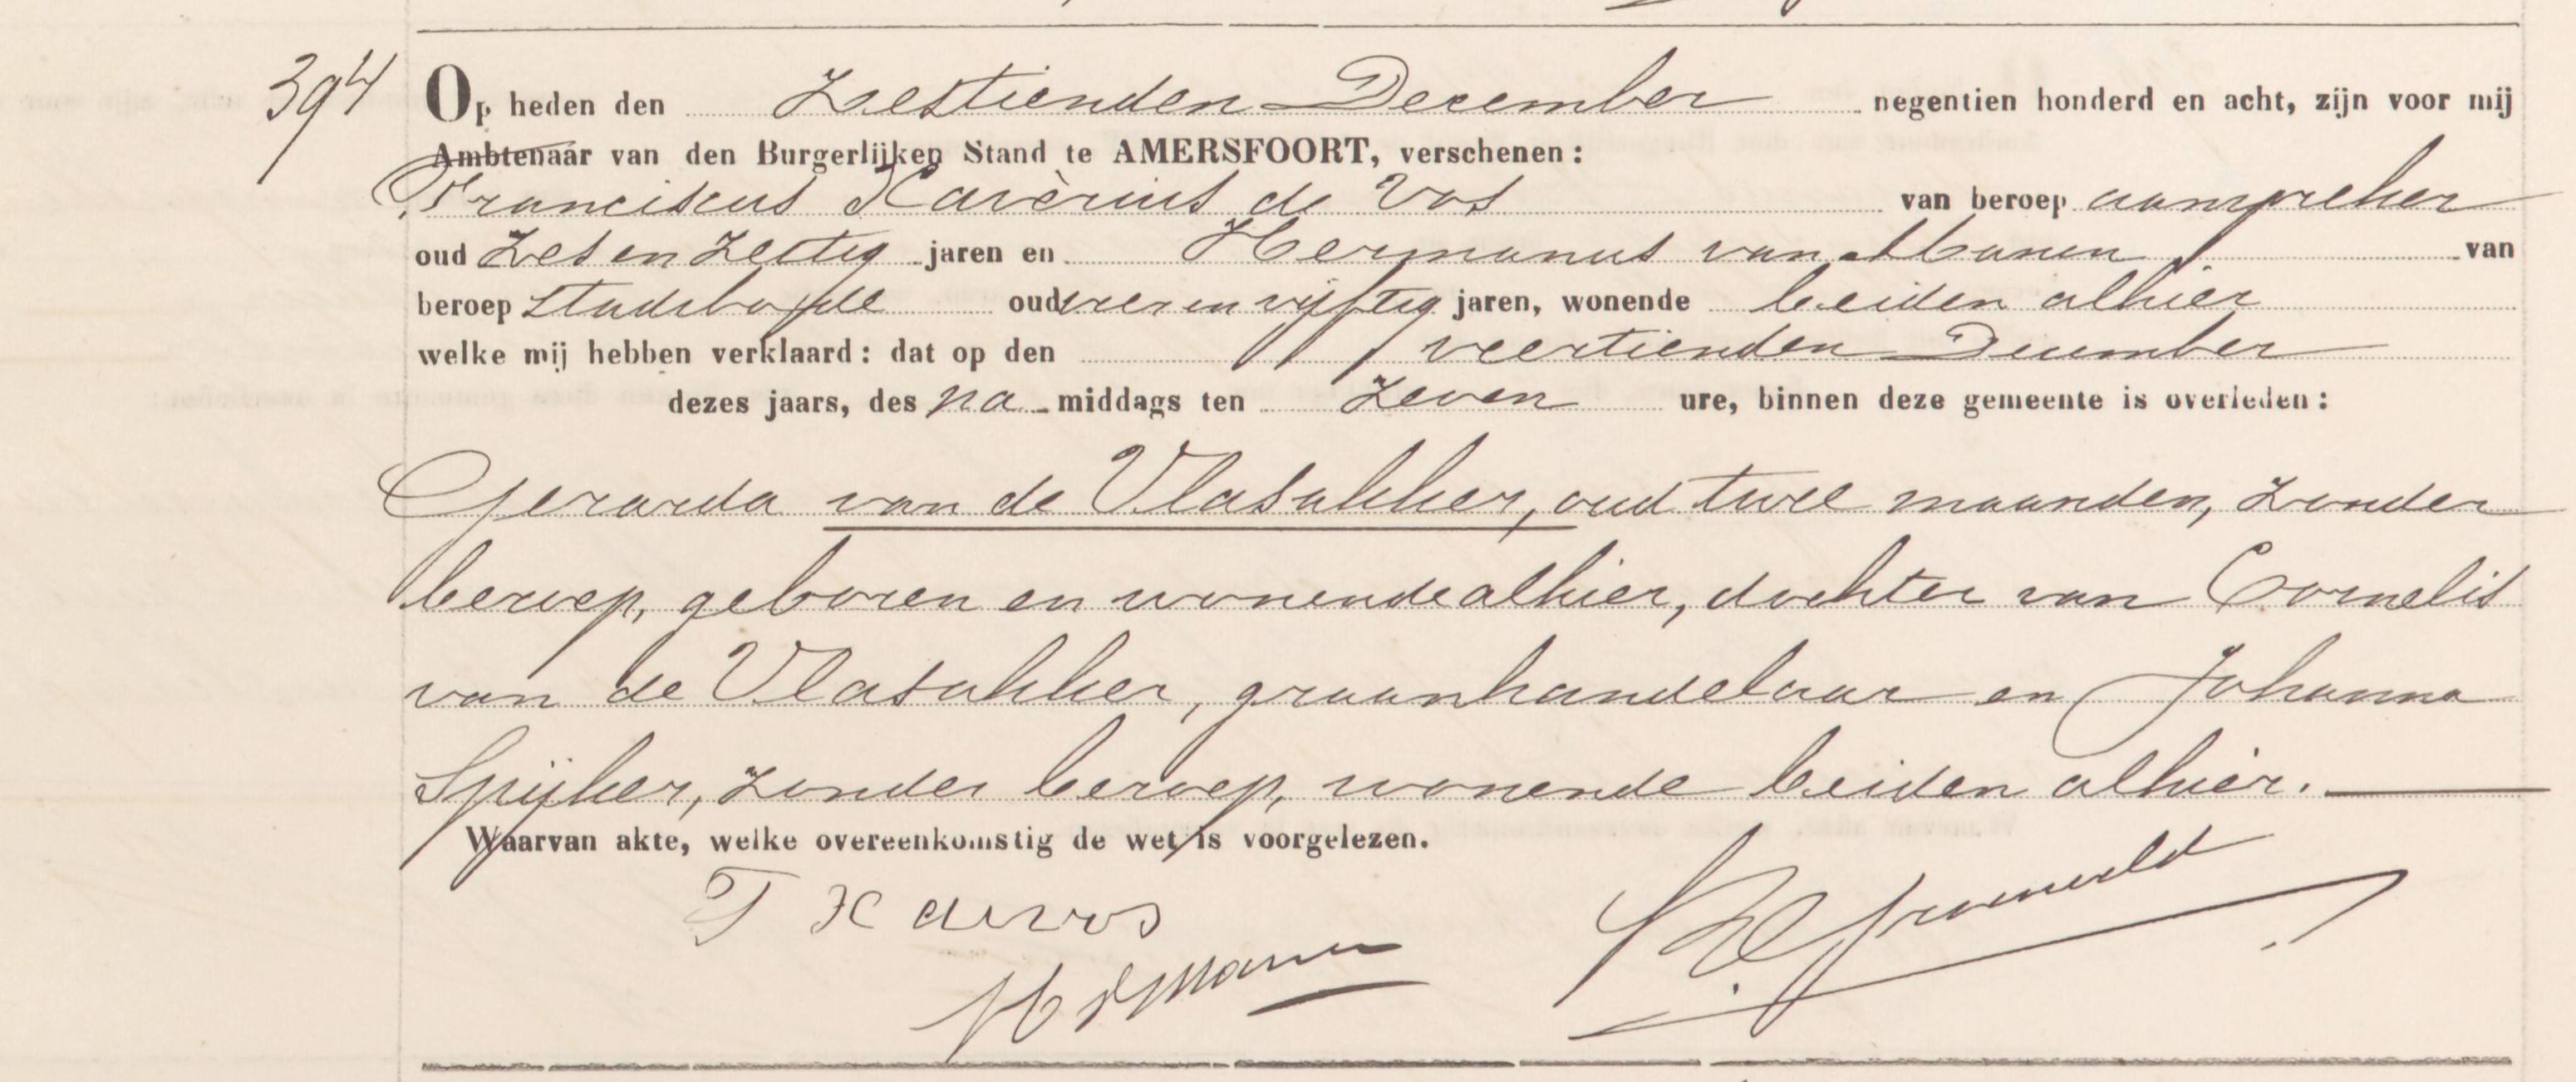 394
Op heden den Zestienden December negentien honderd en acht, zijn voor mij
Ambtenaar van den Burgerlijken Stand te AMERSFOORT, verschenen:
Franciscus Xavèrius de Vos van beroep aanspreker
oud zes en zestig jaren en Hermanus van Manen van
beroep stadsbode oud vier en vijftig jaren, wonende beiden alhier
welke mij hebben verklaard: dat op den veertienden December
dezes jaars, des na middags ten zeven ure, binnen deze gemeente is overleden:
Gerarda van de Vlasakker, oud twee maanden, zonder
beroep, geboren en wonende alhier, dochter van Cornelis
van de Vlasakker, graanhandelaar en Johanna
Spijker, zonder beroep, wonende beiden alhier.
Waarvan akte, welke overeenkomstig de wet is voorgelezen.
F X de Vos
H v Manen